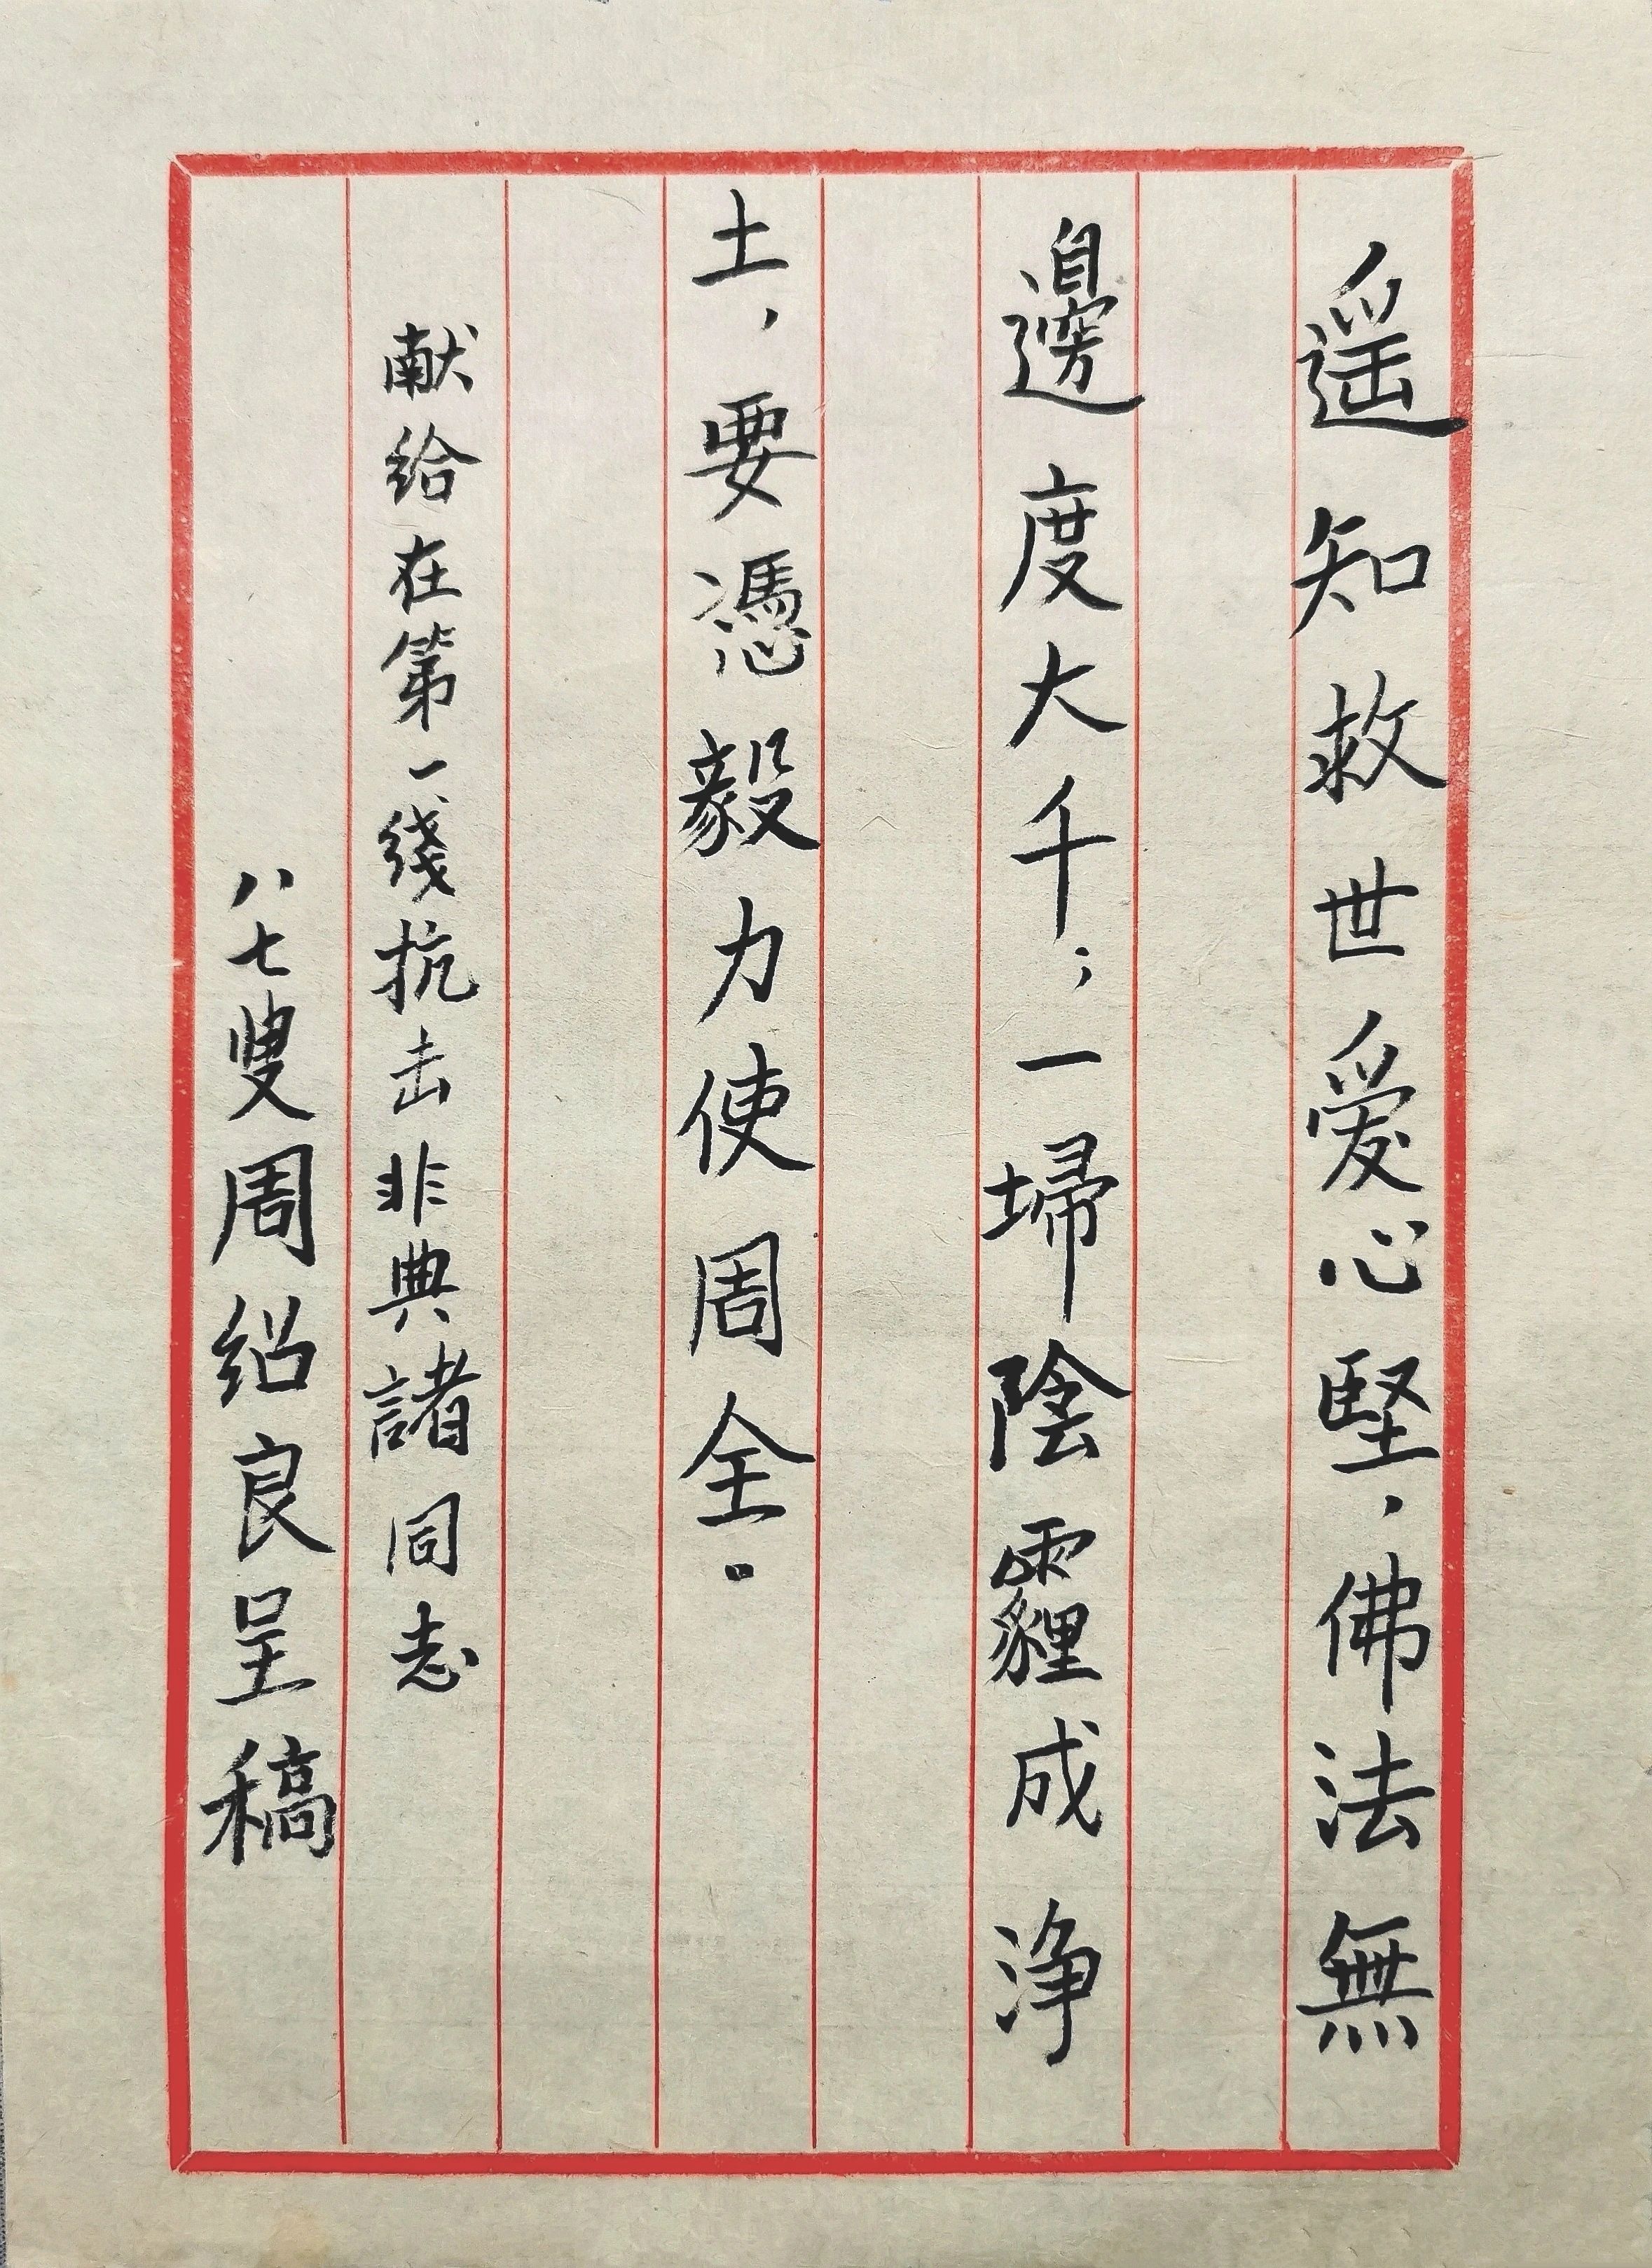 遥知救世爱心堅，佛法無
邊度大千；一埽陰霾成浄
土，要憑毅力使周全。
献给在第一綫抗击非典諸同志
八七叟周绍良呈稿